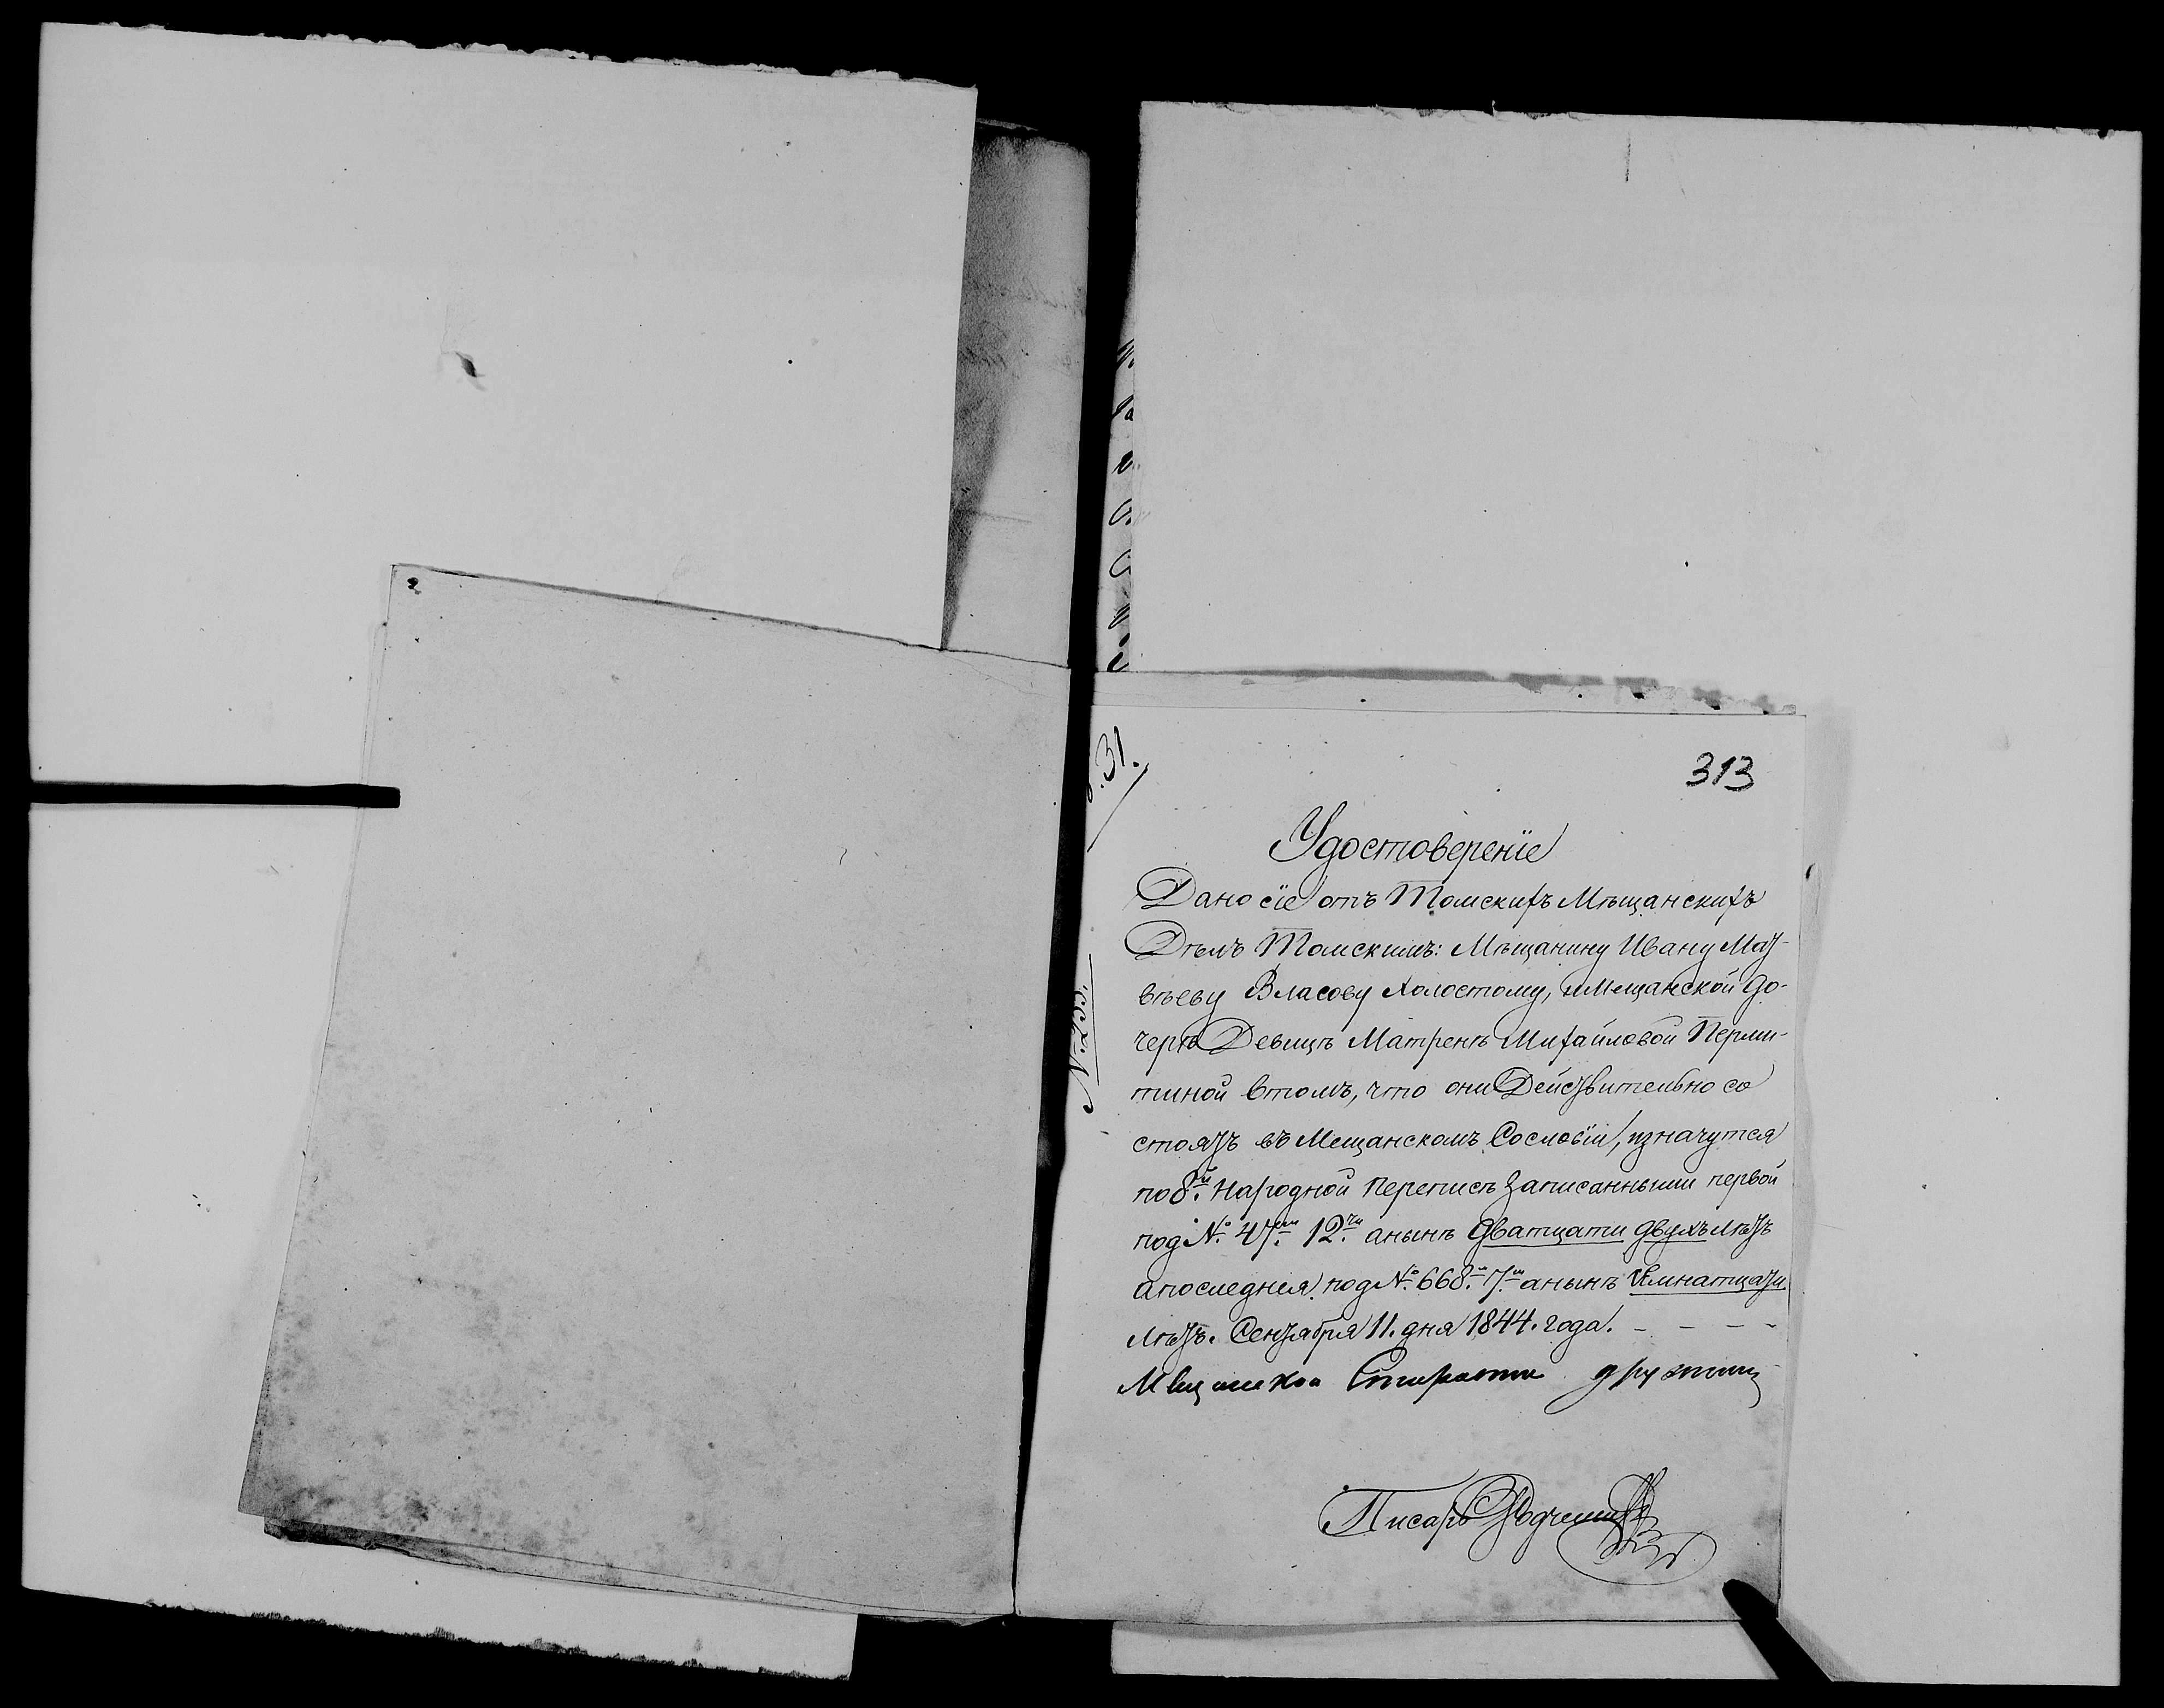 .31.
313
№ 255.
Удостоверенїе
Дано сїе отъ Томскихъ Мѣщанскихъ
Дѣлъ Томскимъ: Мѣщанину Ивану Мат-
вѣеву Власову Холостому, и Мещанской до-
черѣ Девицѣ Матренѣ Михайловой Перми-
тиной втомъ, что они Действительно со
стоятъ въ Мещанскомъ Сословїи, изначутся
по 8.й Народной Переписѣ Записанными первой
под № 47.м 12.ти анынѣ дватцати двухъ лѣтъ
апоследняя под № 668.й 7.м анынѣ
лѣтъ. Сентября 11. дня 1844. года. - - - -
Писарь